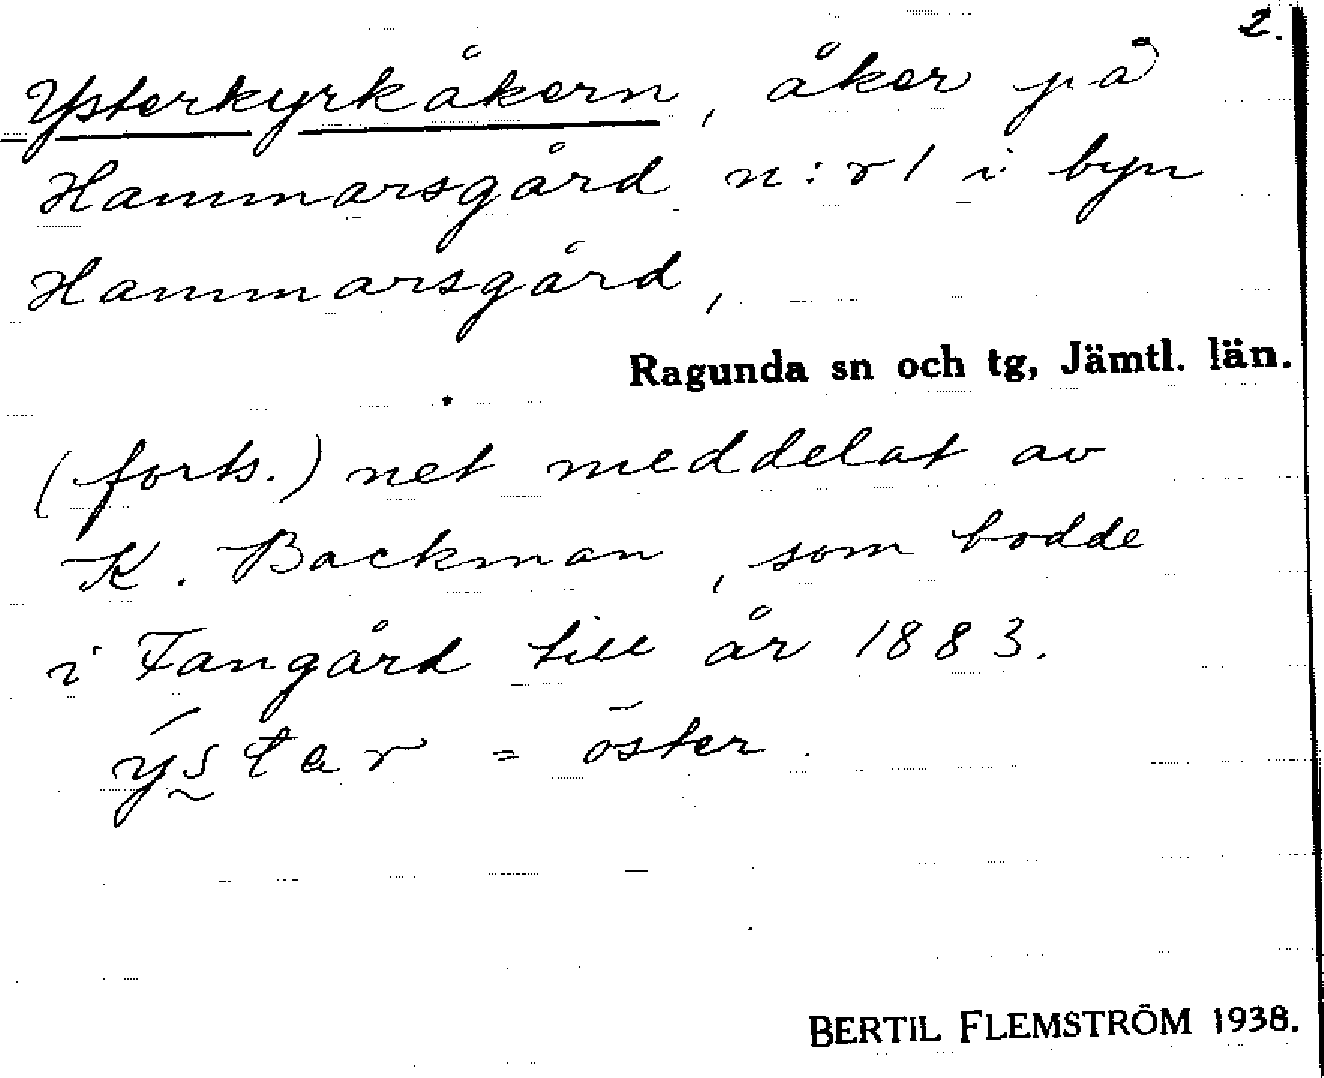 2.
Ysterkyrkåkern, åker på
Hammarsgård n:r 1 i byn
Hammarsgård,
Ragunda sn och tg, Jämtl. län.
(forts.) net meddelat av
K. Backman, som bodde
i Fangård till år 1883.
ýs̰tar = öster.
BERTIL FLEMSTRÖM 1938.